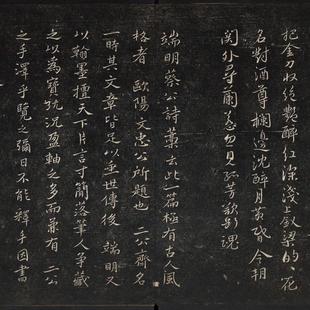 把金刀收絶艷醉紅深淺上釵梁的的花
名對酒尊欄邊沈醉月黃昏今朝
關外尋蘭蕙忽見孤芳欲斷魂
端明蔡公詩藁云此一篇極有古人風
格者 歐陽文忠公所題也 二公齊名
一時其文章皆足以垂世傳後 端明又
以翰墨擅天下片言寸簡落筆人爭藏
之以為寶玩況盈軸之多而兼有 二公
之手澤乎覽之彌日不能釋手因書